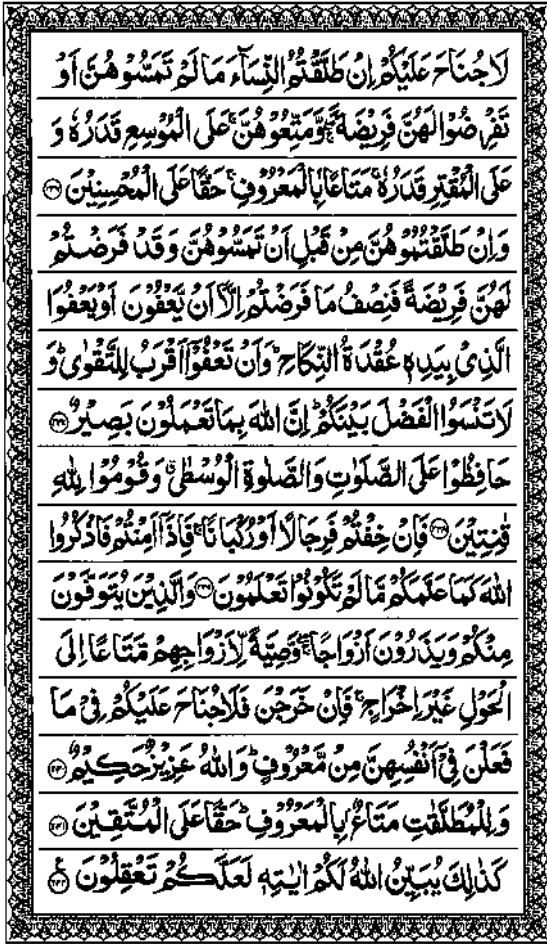 لَا جُنَاحَ عَلَيْكُمْ اِنْ طَلَّقْتُمُ النِّسَآءَ مَا لَمْ تَمَسُّوْهُنَّ اَوْ
تَفْرِضُوْا لَهُنَّ فَرِيْضَةً ۚۖ وَّمَتِّعُوْهُنَّ ۚ عَلَى الْمُوْسِعِ قَدَرُهٗ وَ
عَلَى الْمُقْتِرِ قَدَرُهٗ ۚ مَتَاعًاۢ بِالْمَعْرُوْفِ ۚ حَقًّا عَلَى الْمُحْسِنِيْنَ ﴿۲۳۶﴾
وَاِنْ طَلَّقْتُمُوْهُنَّ مِنْ قَبْلِ اَنْ تَمَسُّوْهُنَّ وَقَدْ فَرَضْتُمْ
لَهُنَّ فَرِيْضَةً فَنِصْفُ مَا فَرَضْتُمْ اِلَّاۤ اَنْ يَّعْفُوْنَ اَوْ يَعْفُوَا
الَّذِىْ بِيَدِهٖ عُقْدَةُ النِّكَاحِ ؕ وَاَنْ تَعْفُوْۤا اَقْرَبُ لِلتَّقْوٰى ؕ وَ
لَا تَنْسَوُا الْفَضْلَ بَيْنَكُمْ ؕ اِنَّ اللّٰهَ بِمَا تَعْمَلُوْنَ بَصِيْرٌ ﴿۲۳۷﴾
حَافِظُوْا عَلَى الصَّلَوٰتِ وَالصَّلٰوةِ الْوُسْطٰى ۗ وَقُوْمُوْا لِلّٰهِ
قٰنِتِيْنَ ﴿۲۳۸﴾ فَاِنْ خِفْتُمْ فَرِجَالًا اَوْ رُكْبَانًا ۚ فَاِذَاۤ اَمِنْتُمْ فَاذْكُرُوا
اللّٰهَ كَمَا عَلَّمَكُمْ مَّا لَمْ تَكُوْنُوْا تَعْلَمُوْنَ ﴿۲۳۹﴾ وَالَّذِيْنَ يُتَوَفَّوْنَ
مِنْكُمْ وَيَذَرُوْنَ اَزْوَاجًا ۚۖ وَّصِيَّةً لِّاَزْوَاجِهِمْ مَّتَاعًا اِلَى
الْحَوْلِ غَيْرَ اِخْرَاجٍ ۚ فَاِنْ خَرَجْنَ فَلَا جُنَاحَ عَلَيْكُمْ فِىْ مَا
فَعَلْنَ فِىْۤ اَنْفُسِهِنَّ مِنْ مَّعْرُوْفٍ ؕ وَاللّٰهُ عَزِيْزٌ حَكِيْمٌ ﴿۲۴۰﴾
وَلِلْمُطَلَّقٰتِ مَتَاعٌۢ بِالْمَعْرُوْفِ ؕ حَقًّا عَلَى الْمُتَّقِيْنَ ﴿۲۴۱﴾
كَذٰلِكَ يُبَيِّنُ اللّٰهُ لَكُمْ اٰيٰتِهٖ لَعَلَّكُمْ تَعْقِلُوْنَ ﴿۲۴۲﴾ ع